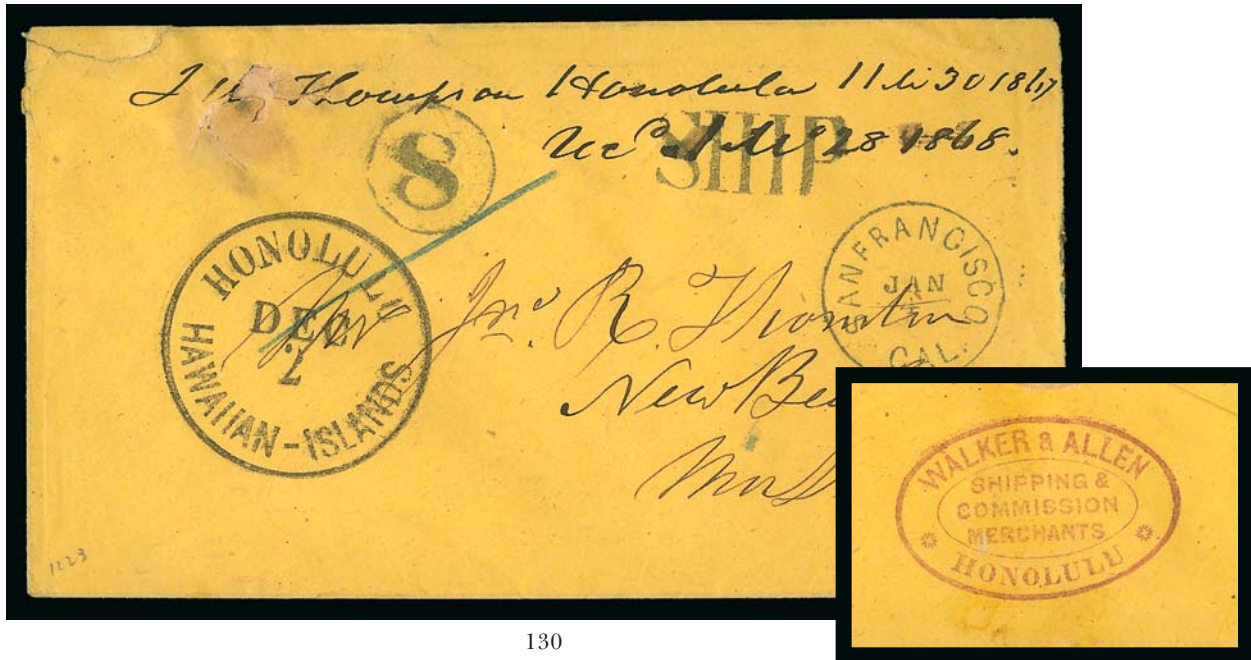 Thompson Honolulu 11 30 1867
Recd 28 1868.
8
SHIP
HONOLULU
DEC
2
HAWAIIAN-ISLANDS
SAN FRANCISCO
JAN
CAL.
Jno. R. Thornton
New Be
Mass
1223
WALKER & ALLEN
SHIPPING &
COMMISSION
MERCHANTS
HONOLULU
130